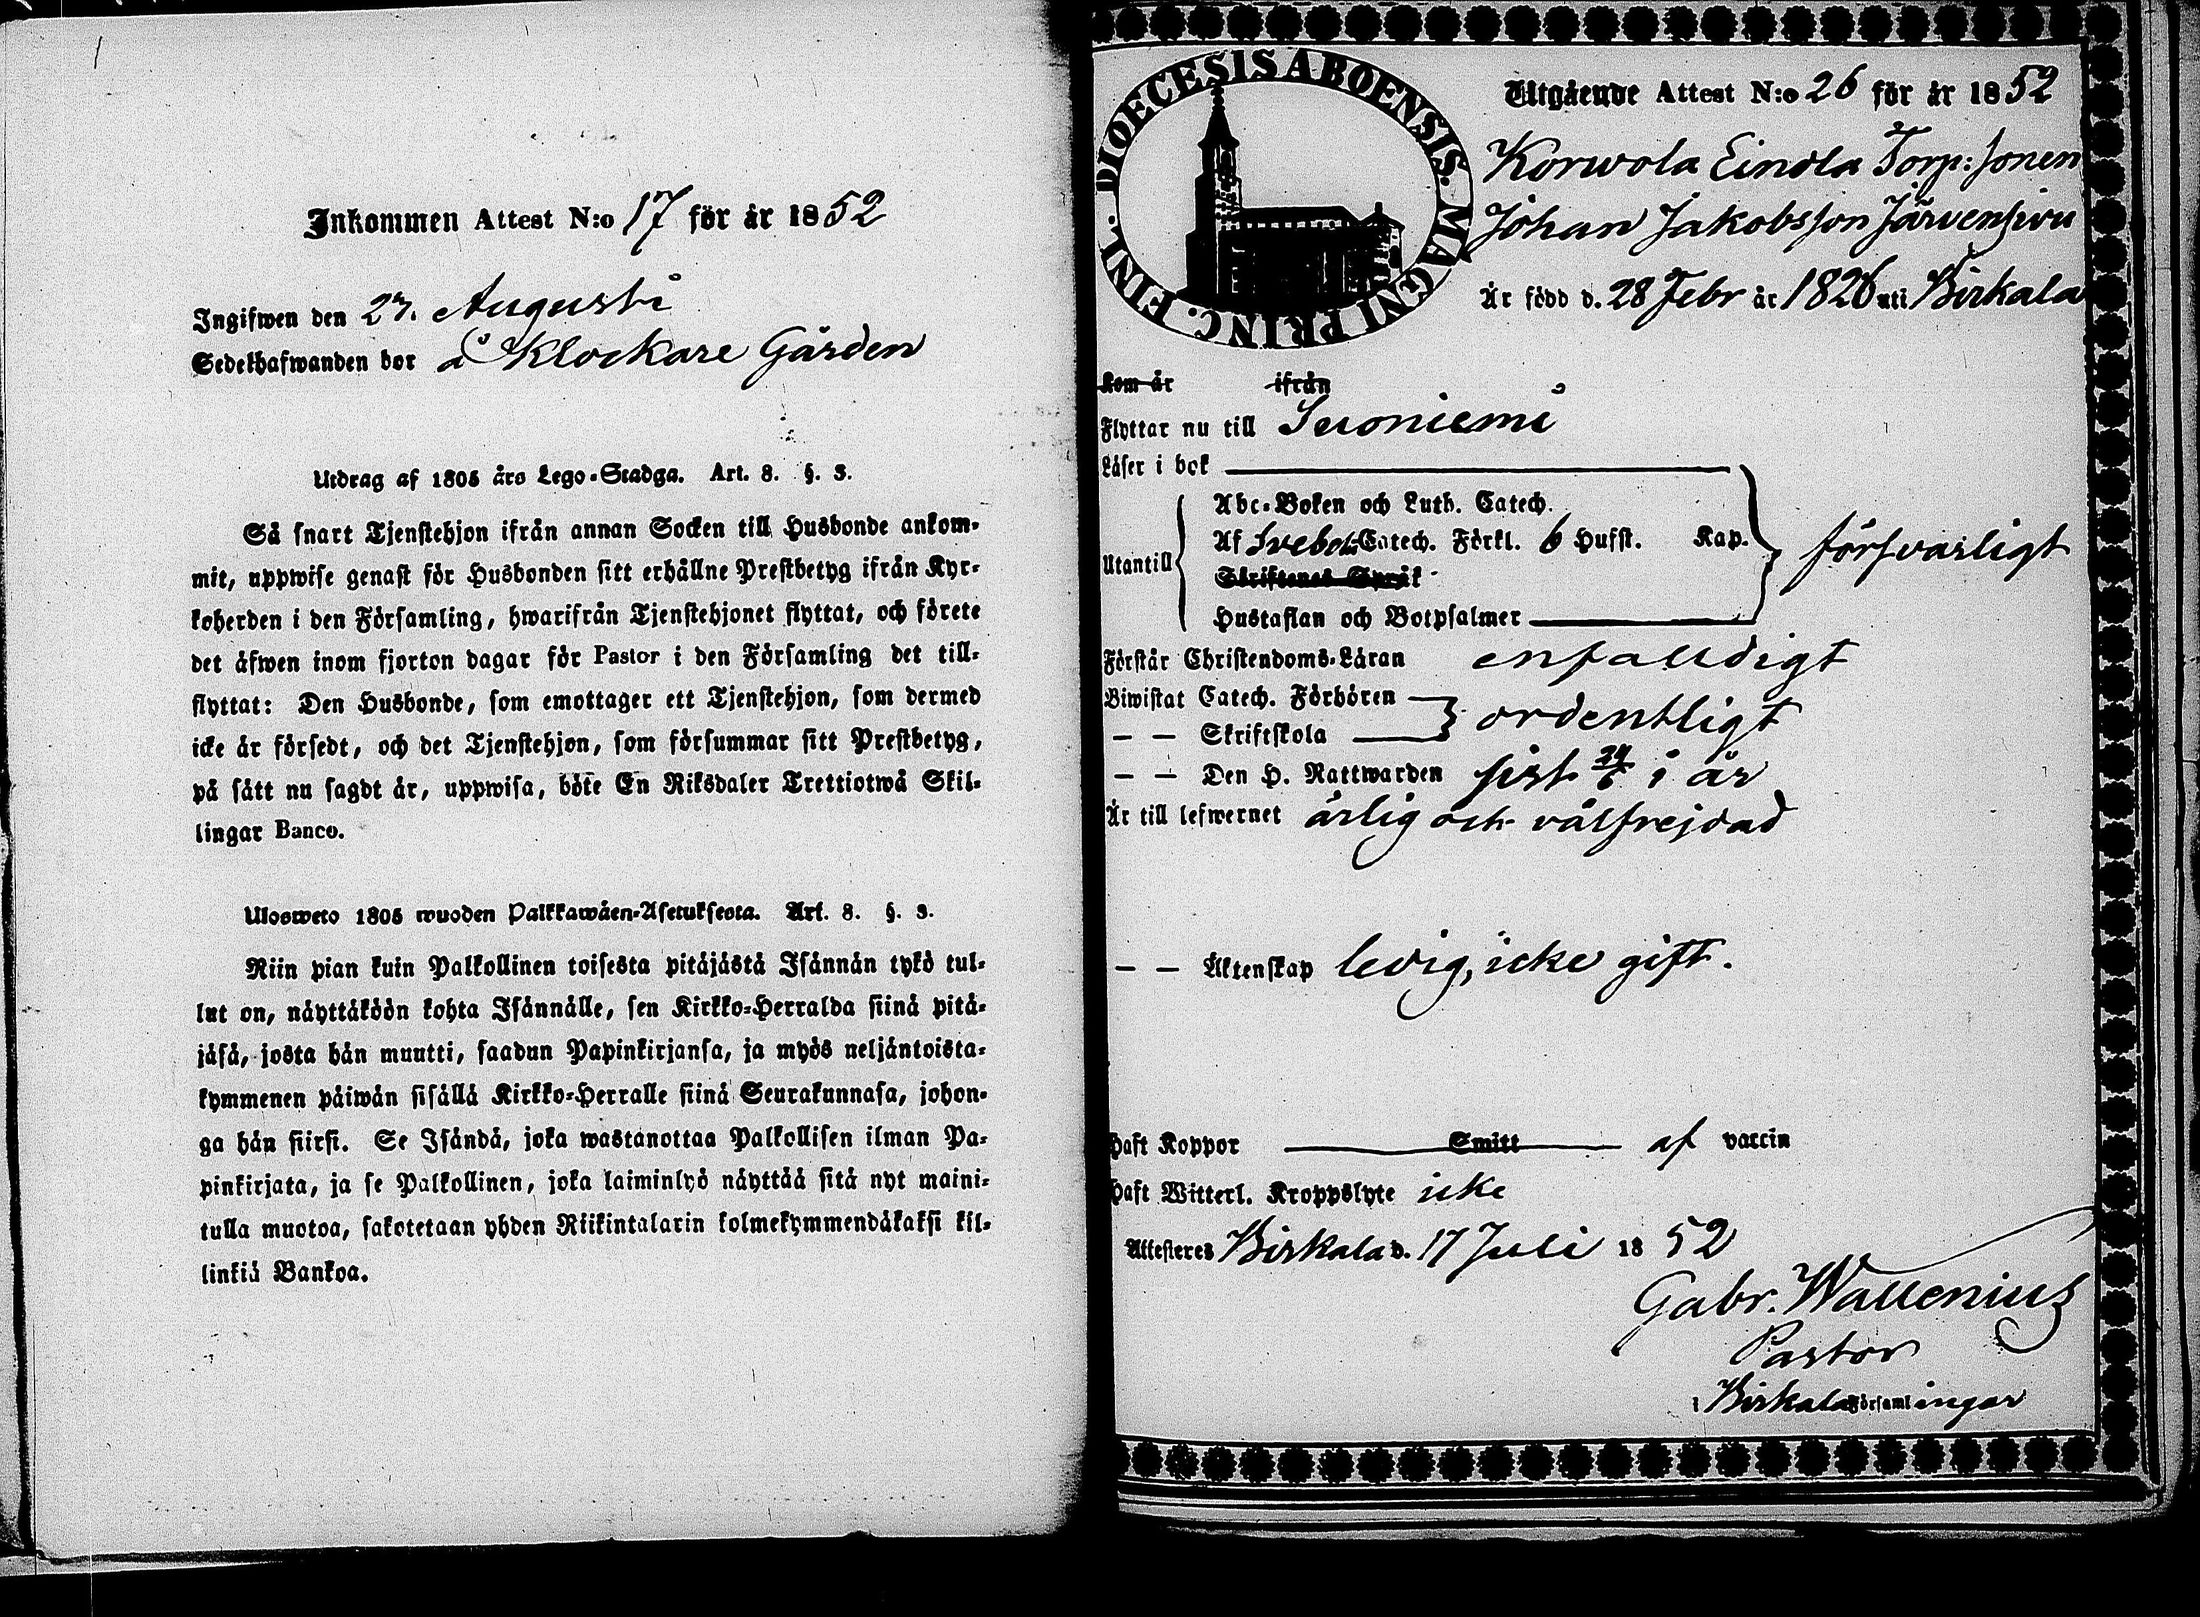 Inkommen Attest N:o 17 för år 1852
Ingifwen den 27. Augusti
Sedelhafwanden bor å Klockare Gården
Utdrag af 1805 års Lego-Stadga. Art. 8. §. 3.
Så snart Tjenstehjon ifrån annan Socken till Husbonde ankom-
mit, uppwise genast för Husbonden sitt erhållne Prestbetyg ifrån Kyr-
koherden i den Församling, hwarifrån Tjenstehjonet flyttat, och förete
det äfwen inom fjorton dagar för Pastor i den Församling det till-
flyttat: Den Husbonde, som emottager ett Tjenstehjon, som dermed
icke är försedt, och det Tjenstehjon, som försummar sitt Prestbetyg,
på sätt nu sagdt är, uppwisa, böte En Riksdaler Trettiotwå Skil-
lingar Banco.
Ulosweto 1805 wuoden Palkkawäen-Asetuksesta. Art. 8. §. 3.
Niin pian kuin Palkollinen toisesta pitäjästä Isännän tykö tul-
lut on, näyttäköön kohta Isännälle, sen Kirkko-Herralda siinä pitä-
jäsä, josta hän muutti, saadun Papinkirjansa, ja myös neljäntoista-
kymmenen päiwän sisällä Kirkko-Herralle siinä Seurakunnasa, johon-
ga hän siirsi. Se Isändä, joka wastanottaa Palkollisen ilman Pa-
pinkirjata, ja se Palkollinen, joka laiminlyö näyttää sitä nyt maini-
tulla muotoa, sakotetaan yhden Riikintalarin kolmekymmendäkaksi kil-
linkiä Bankoa.
DIOECESIS ABOENSIS. MAGNI PRINC. FINL.
Utgående Attest N:o 26 för år 1852
Korwola Eindla Torp: sonen
Johan Jakobsson Järvensivu
Är född d. 28 Febr år 1826 uti Birkala
Kom år ifrån
Flyttar nu till Suoniemi
Läser i bok
Abc-Boken och Luth. Catech.
Af Svebelii Catech. Förkl. 6 Hufst. Kap. försvarligt
Utantill
Skriftenes Språk
Hustaflan och Botpsalmer
Förstår Christendoms-Läran enfalldigt
Biwistat Catech. Förhören
ordentligt
— — Skriftskola
— — Den H. Nattwarden sist 24/6 i år
Är till lefwernet ärlig och välfrejdad
— — Äktenskap ledig, icke gift.
Haft Koppor Smitt af vaccin
Haft Witterl. Kroppslyte icke
Attesteres Birkala d. 17 Juli 1852
Gabr. Wallenius
Pastor
i Birkala Församlingar